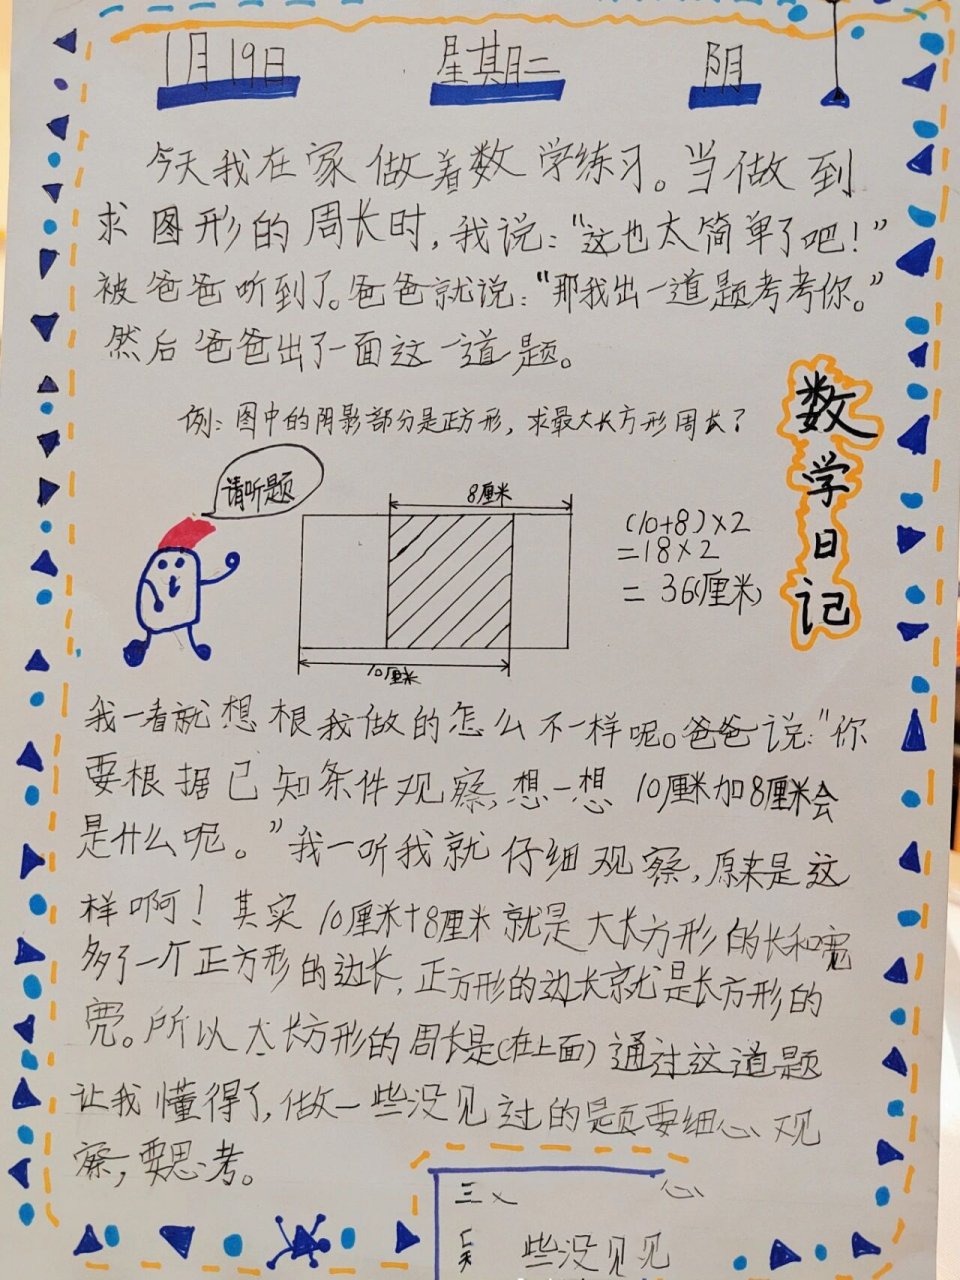 1月19日 星期二 阴
今天我在家做着数学练习。当做到
求图形的周长时,我说:“这也太简单了吧!”
被爸爸听到了。爸爸就说:“那我出一道题考考你。”
然后爸爸出了一面这一道题。
数学日记
例:图中的阴影部分是正方形,求最大长方形周长?
请听题
8厘米
10厘米
(10+8)×2
=18×2
=36(厘米)
我一看就想根我做的怎么不一样呢。爸爸说:“你
要根据已知条件观察,想一想10厘米加8厘米会
是什么呢。”我一听我就仔细观察,原来是这
样啊!其实10厘米+8厘米就是大长方形的长和宽
多了一个正方形的边长,正方形的边长就是长方形的
宽。所以大长方形的周长是(在上面)通过这道题
让我懂得了,做一些没见过的题要细心、观
察,要思考。
些没见见